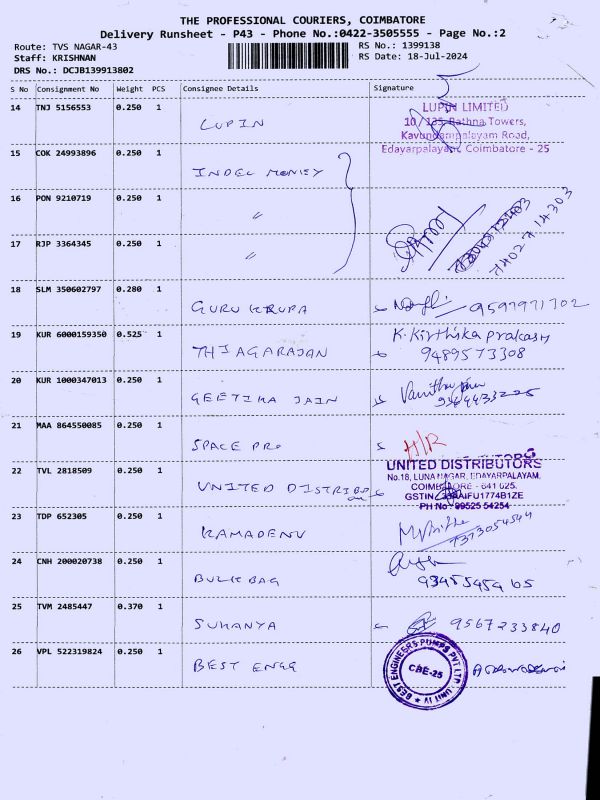 THE PROFESSIONAL COURIERS, COIMBATORE
Delivery Runsheet - P43 - Phone No.:0422-3505555 - Page No.:2
Route: TVS NAGAR-43
RS No.: 1399138
Staff: KRISHNAN
RS Date: 18-Jul-2024
DRS No.: DCJB139913802
S No Consignment No Weight PCS Consignee Details Signature
14 TNJ 5156553 0.250 1 LUPIN
LUPIN LIMITED
10/135, Rathna Towers,
Kavundampalayam Road,
Edayarpalayam, Coimbatore - 25
15 COK 24993896 0.250 1 INDEL MONEY
16 PON 9210719 0.250 1 "
17 RJP 3364345 0.250 1 "
7402714303
18 SLM 350602797 0.280 1 GURU KRUPA 9597971702
19 KUR 6000159350 0.525 1 THIAGARAJAN K. Kirthika prakash
9489573308
20 KUR 1000347013 0.250 1 GEETIKA JAIN
21 MAA 864550085 0.250 1 SPACE PRO H/R
22 TVL 2818509 0.250 1 UNITED DISTRIBUTOR
UNITED DISTRIBUTORS
No.18, LUNA NAGAR, EDAYARPALAYAM,
COIMBATORE - 641 025.
GSTIN AIFU1774B1ZE
PH No: 99525 54254
23 TDP 652305 0.250 1 KAMADENU 7373054544
24 CNH 200020738 0.250 1 BULK BAG
25 TVM 2485447 0.370 1 SUKANYA 9567233840
26 VPL 522319824 0.250 1 BEST ENGG
BEST ENGINEERS PUMPS PVT LTD. UNIT IV
CBE-25